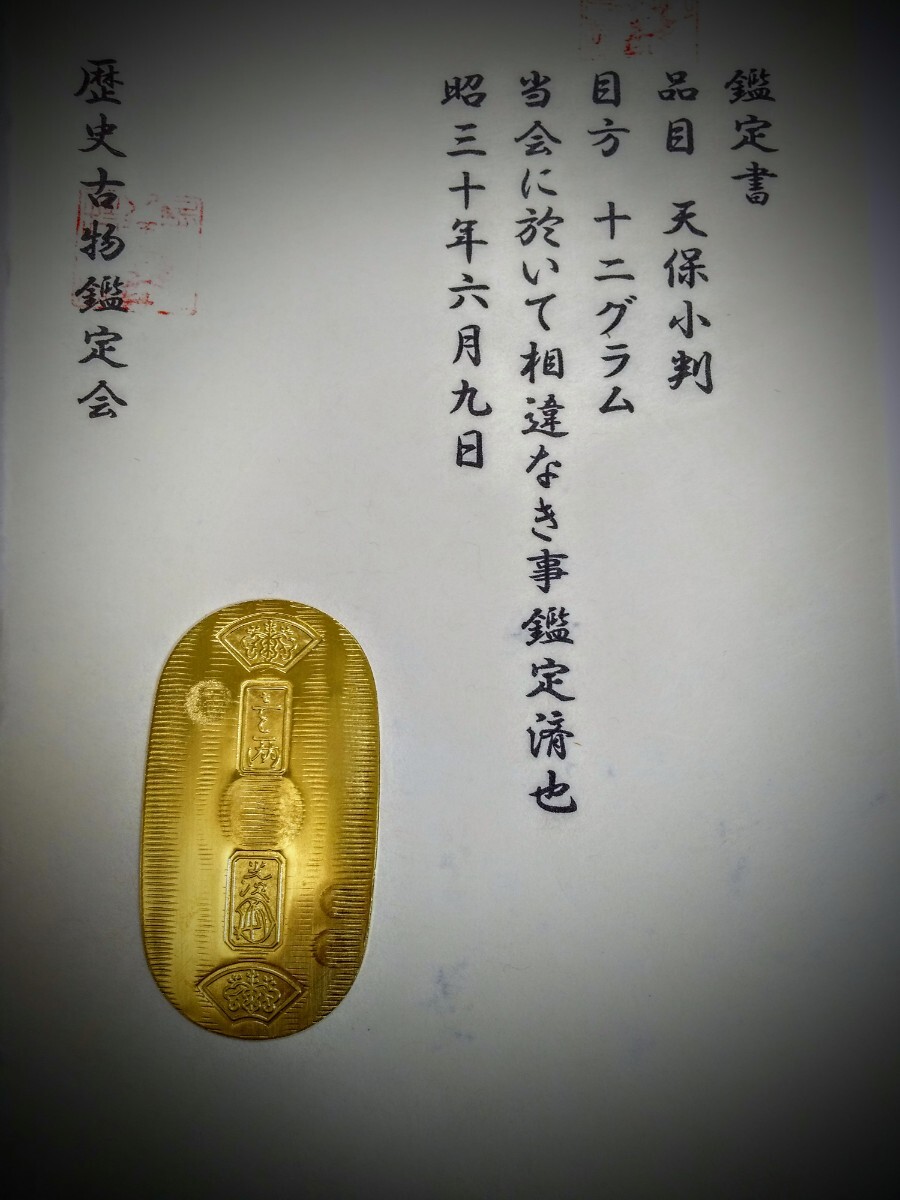 鑑定書
品目 天保小判
目方 十二グラム
当会に於いて相違なき事鑑定済也
昭三十年六月九日
歴史古物鑑定会